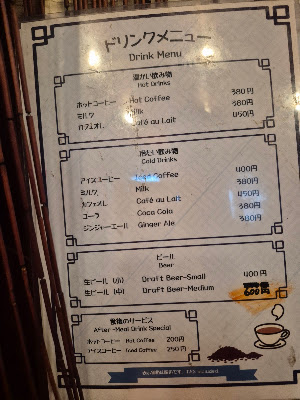 ドリンクメニュー
Drink Menu
温かい飲み物
Hot Drinks
ホットコーヒー Hot Coffee 380円
ミルク Milk 380円
カフェオレ Café au Lait 450円
冷たい飲み物
Cold Drinks
アイスコーヒー Iced Coffee 400円
ミルク Milk 380円
カフェオレ Café au Lait 450円
コーラ Coca Cola 380円
ジンジャーエール Ginger Ale 380円
ビール
Beer
生ビール (小) Draft Beer-Small 400円
生ビール (中) Draft Beer-Medium 600円
食後のサービス
After-Meal Drink Special
ホットコーヒー Hot Coffee 200円
アイスコーヒー Iced Coffee 250円